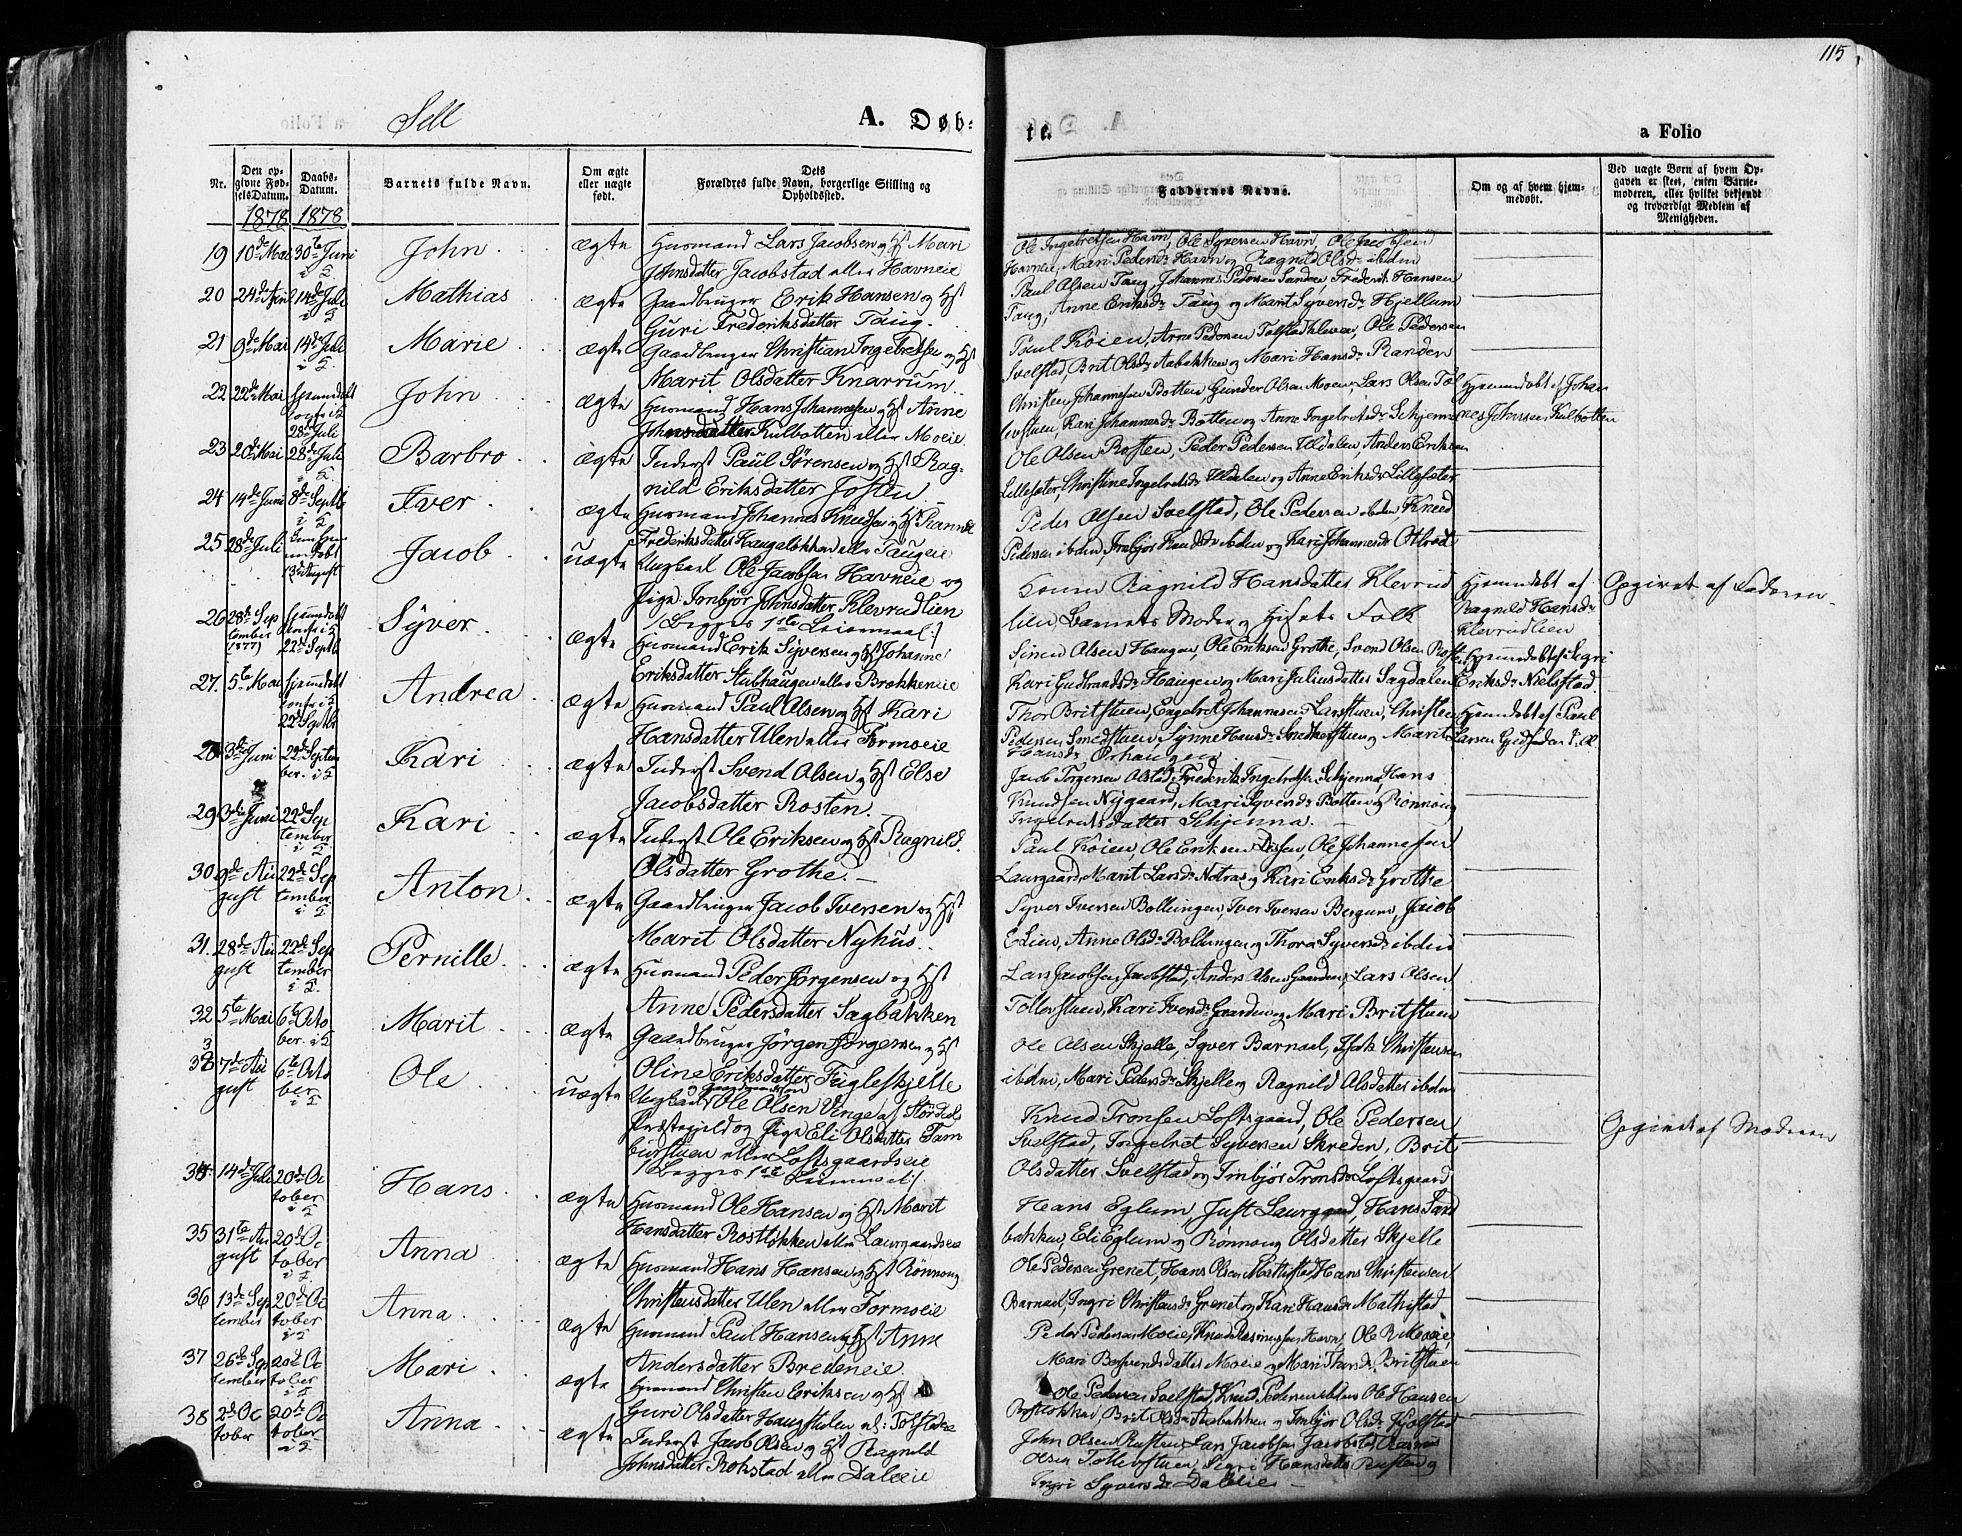 115
Sell
A. Døb-
te.
a Folio
Nr.
Den op-
givne Fød-
selsDatum.
1878
Daabs-
Datum.
1878
Barnets fulde Navn.
Om ægte
eller uægte
født.
Dets
Forældres fulde Navn, borgerlige Stilling og
Opholdssted.
Faddernes Navne.
Om og af hvem hjem-
medøbt.
Ved uægte Børn af hvem Op-
gaven er skeet, enten Barne-
moderen, eller hvilket bekjendt
og troværdigt Medlem af
Menigheden.
19 10de Mai 30te Juni John ægte Huusmand Lars Jacobsen og Hst Mari
Johnsdatter Jacobstad eller Havneie
Ole Ingebretsen Havn, Ole Syversen Havn, Ole Jacobsen
Havneie, Mari Pedersdr Havn og Ragnild Olsdr ibdm
20 24de April 14de Juli Mathias ægte Gaardbruger Erik Hansen og Hst
Guri Frederiksdatter Taug.
Paul Olsen Taug Johannes Pedersen Sanden, Frederik Hansen
Taug, Anne Eriksdr Taug og Marit Syversdr Hjellum
21 9de Mai 14de Juli Marie ægte Gaardbruger Christian Ingebretsen og Hst
Marit Olsdatter Knarrum.
Paul Køien, Arne Pedersen Tolstadkleven, Ole Pedersen
Svelstad, Brit Olsdr Aabakken og Mari Hansdr Randen
22 22de Mai Hjemmedøbt
28de Juli John ægte Huusmand Hans Johannesen og Hst Anne
Johnsdatter Kulbotten eller Moeie
Christen Johannesen Botten, Gunder Olsen Moen, Lars Olsen Tol
levstuen, Kari Johannesdr Botten og Anne Ingebretsdr Schjenna
Hjemmedøbt af Johan
nes Johnsen Kulbotten
23 20de Mai 28de Juli Barbro ægte Inderst Paul Sørensen og Hst Rag-
nild Eriksdatter Josten
Ole Olsen Rosten, Peder Pedersen Uldalen, Anders Eriksen
Lillesæter, Christine Ingebretsdr Uldalen og Anne Eriksdr Lillesæter
24 14de Juni 8de Septb Iver ægte Huusmand Johannes Knudsen og Hst Rannei
Frederiksdatter Haugeløkken eller Taugeie
Peder Olsen Svelstad, Ole Pedersen ibdm, Knud
Pedersen ibdm, Imbjør Knudsdr ibdm og Kari Johannesdr
25 28de Juli
13de August Jacob uægte Ungkarl Ole Jacobsen Havneie og
Pige Imbjør Johnsdatter Klevrudlien
/: Begges 1ste Leiermaal :/
Konen Ragnild Hansdatter Klevrud
lien, Barnets Moder og Husets Folk
Hjemmedøbt af
Ragnild Hansdr
Klevrudlien
Opgivet af Faderen
26 28de Sep
tember
(1877) Hjemmedøbt
22de Septb Syver ægte Huusmand Erik Syversen og Hst Johanne
Eriksdatter Stubhaugen eller Brækkeneie
Simen Olsen Haugen, Ole Eriksen Grothe, Svend Olsen Rosten
Kari Gudbrandsdr Haugen og Mari Juliusdatter Sagdalen
Hjemmedøbt af Sigri
Eriksdr Nielsstad.
27. 5te Mai Hjemmedøbt
22de Septbr Andrea ægte Huusmand Paul Olsen og Hst Kari
Hansdatter Ulen eller Formoeie
Thor Britstuen, Engebret Johannesen Larsstuen, Christen
Pedersen Smedstuen, Synne Hansdr Smedstuen og Marit
Hansdr Ørhaugen
Hjemmedøbt af Paul
28 3de Juni 22de Septem
ber. Kari ægte Inderst Svend Olsen og Hst Else
Jacobsdatter Rosten.
Jacob Torgersen Olstad, Frederik Ingebretsen Schjenna, Hans
Knudsen Nygaard, Mari Syversdr Botten og Rønnoug
Ingebretsdatter Schjenna.
29 3die Juni 22de Sep
tember Kari ægte Inderst Ole Eriksen og Hst Ragnild
Olsdatter Grothe.
Paul Køien, Ole Eriksen, Ole Johannesen
Laurgaard, Marit Larsdr og Kari Eriksdr Grothe
30 9de Au
gust 22de Sep
tember Anton ægte Gaardbruger Jacob Iversen og Hst
Marit Olsdatter Nyhus.
Syver Iversen Bollingen, Iver Iversen Bergum, Jacob
Anne Olsdr Bollingen og Thora Syversdr ibdm
31. 28de Au
gust 22de Sep
tember Pernille ægte Huusmand Peder Jørgensen og Hst
Anne Pedersdatter Sagbakken
Lars Jacobsen Jacobstad, Anders Olsen Gaarden, Lars Olsen
Tollevstuen, Kari Iversdr Gaarden og Mari Britstuen
32 5te Mai 6te Octo
ber Marit ægte Gaardbruger Jørgen Jørgensen og Hst
Oline Eriksdatter Fugleskjelle
Ole Olsen Skjelle, Syver Barnael, Isak Christensen
ibdm, Mari Pedersdr Skjelle og Ragnild Olsdatter ibdm
33 7de Au
gust 6te Octo
ber Ole uægte Ungkarl Ole Olsen Vinge af Stördals
Præstegjeld og Pige Eli Olsdatter Tam
burstuen eller Loftsgaardseie
/: Begges 1ste Leiermaal :/
Knud Tronsen Loftsgaard, Ole Pedersen
Svelstad, Ingebret Syversen Skreden, Brit
Olsdatter Svelstad og Imbjør Tronsdr Loftsgaard
Opgivet af Moderen
34 14de Juli 20de Oc
tober Hans ægte Huusmand Ole Hansen og Hst Marit
Hansdatter Rostløkken eller Laurgaardseie
Hans Eglum, Just Laurgaard, Hans Sand
bakken, Eli Eglum og Rønnoug Olsdatter Skjelle
35 31te Au
gust 20de Oc
tober Anna ægte Huusmand Hans Hansen og Hst Rønnoug
Christensdatter Ulen eller Formoeie
Ole Pedersen Grenet, Hans Olsen Mathistad, Hans Christensen
Barnael, Ingri Christensdr Grenet og Kari Hansdr Mathistad
36 13de Sep
tember 20de Oc
tober Anna ægte Huusmand Paul Hansen og Hst Anne
Andersdatter Bredeneie
Peder Pedersen Moeie, Knud Rasmussen Havn, Ole R. Moeie,
Mari Bosvendsdatter Moeie og Mari Thorsdr Britstuen
37 26de Sep
tember 20de Oc
tober Mari ægte Huusmand Christen Eriksen og Hst
Guri Olsdatter Haugstulen el: Tolstadeie
Ole Pedersen Svelstad, Knud Pedersen ibdm Ole Hansen
Rostløkken, Brit Olsdr Aabakken og Imbjør Olsdr Kjølstad
38 2de Oc
tober 20de Oc
tober Anna ægte Inderst Jacob Olsen og Hst Ragnild
Johnsdatter Rokstad eller Daleeie
John Olsen Rusten, Lars Jacobsen Jacobstad Rasmus
Olsen Tollevstuen, Sigri Hansdatter Rusten og
Ingri Syversdr Daleeie